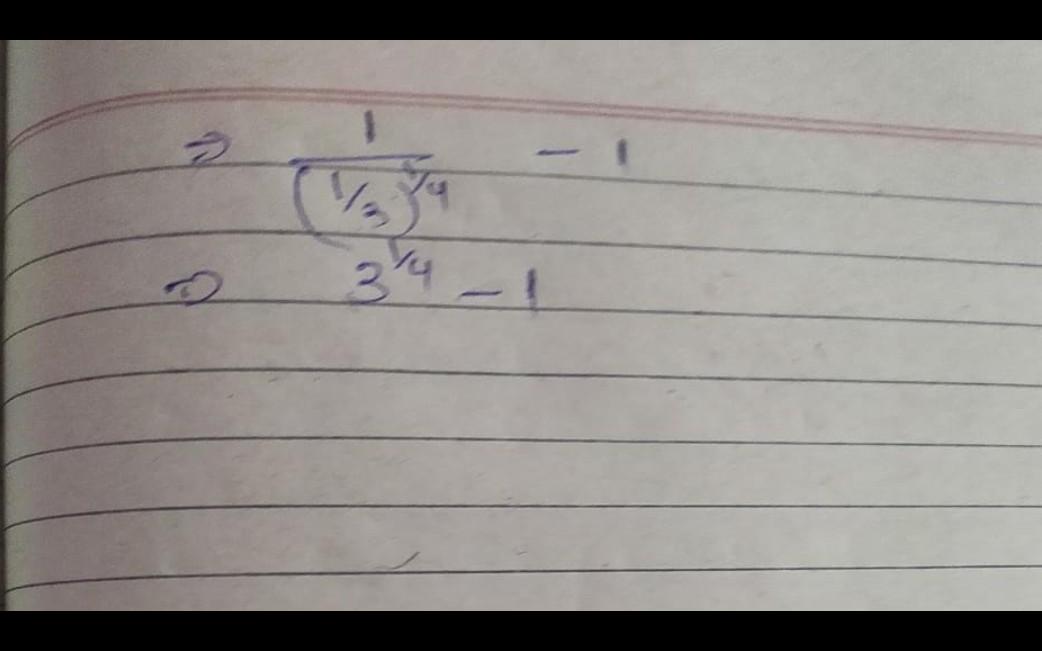 ⇒ 1/(1/3)^1/4 - 1
⇒ 3^1/4 - 1